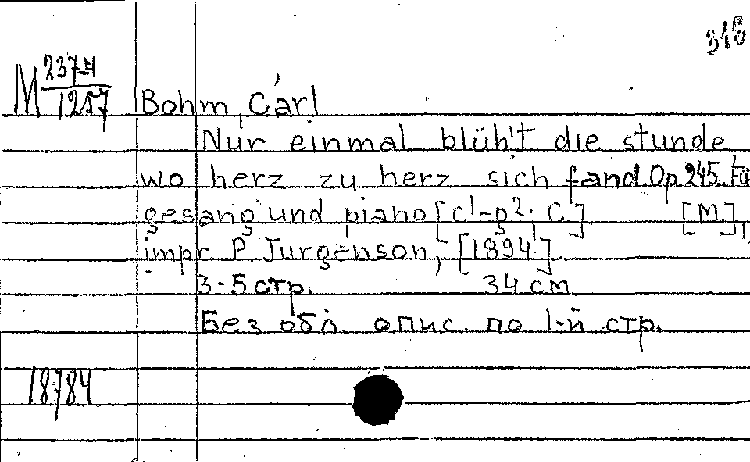 318
M 237-4
1257
Bohm, Carl
Nur einmal blüh't die stunde
wo herz zu herz sich fand. Op. 245. Für
gesang und piano [c¹-g². C] [M],
impr. P. Jurgenson, [1894].
3-5 стр. 34 см
Без обл. опис. по 1-й стр.
18784